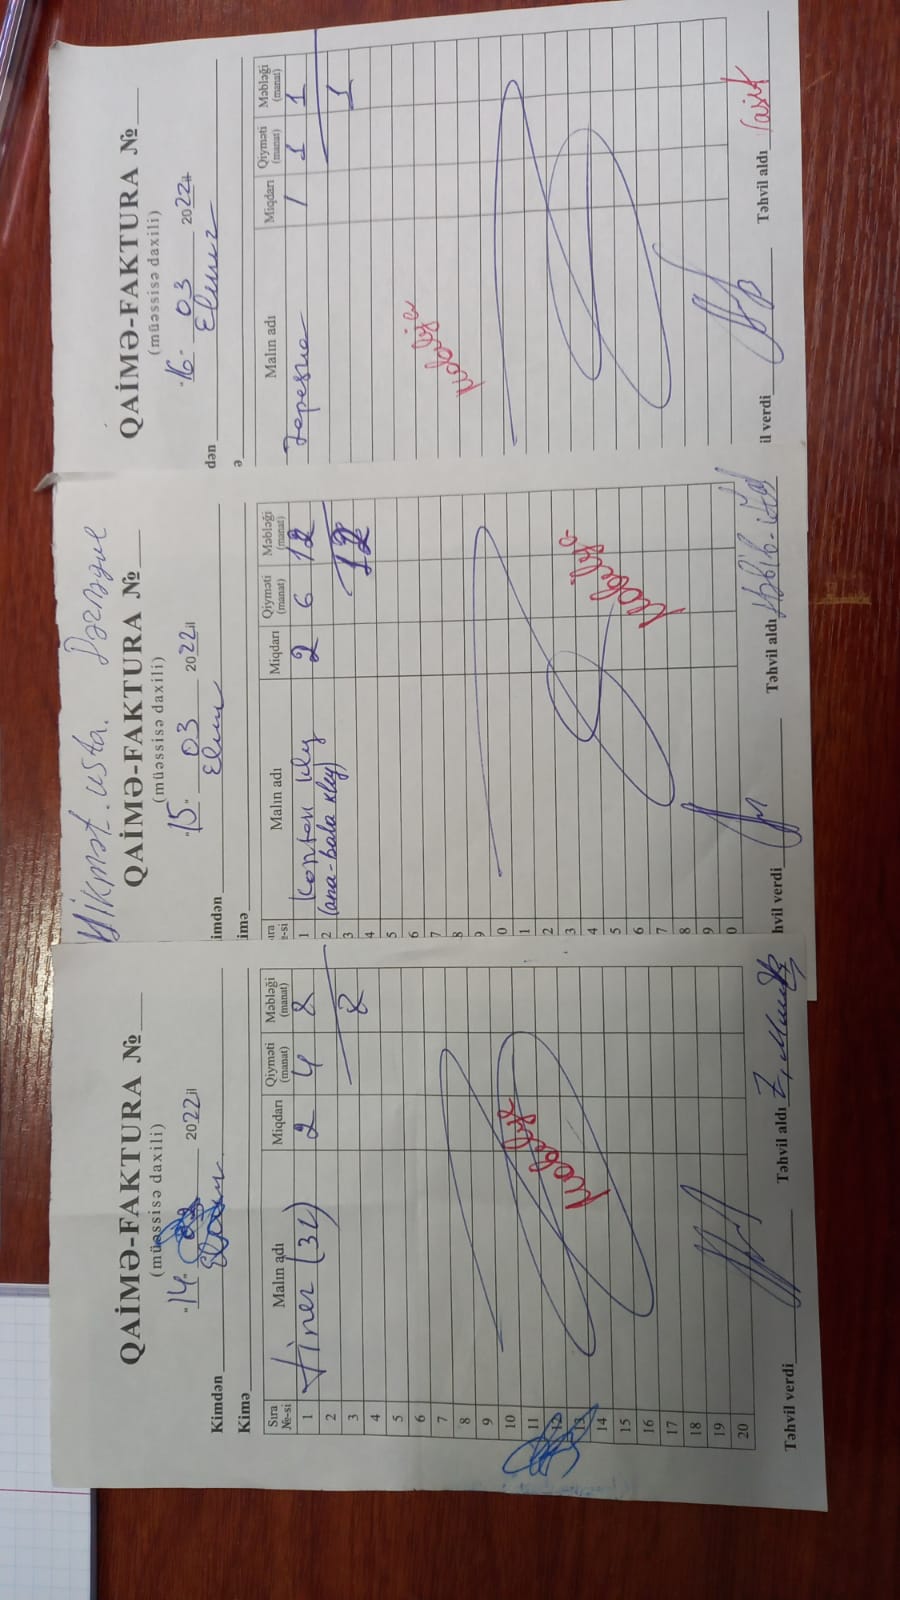 QAİMƏ-FAKTURA №
(müəssisə daxili)
"14" 2022 il
Kimdən
Kimə
Sıra №-si Malın adı Miqdarı Qiyməti (manat) Məbləği (manat)
1 Tiner (3L) 2 4 8
2
3 8
4
5
6
7
8
9
10
11
12
13
14
15
16
17
18
19
20
mobelya
Təhvil verdi Təhvil aldı
Hikmət. usta.
QAİMƏ-FAKTURA №
(müəssisə daxili)
"15" 03 2022 il
imdən Elnur
imə
ıra №-si Malın adı Miqdarı Qiyməti (manat) Məbləği (manat)
1 Konten kley 2 6 12
2 (ana-bala kley)
3 12
4
5
6
7
8
9
0
1
2
3
4
5
6
7
8
9
0
mobelya
hvil verdi Təhvil aldı Həbib.
QAİMƏ-FAKTURA №
(müəssisə daxili)
"16" 03 2022 il
dən Elnur
ə
Malın adı Miqdarı Qiyməti (manat) Məbləği (manat)
1 1 1
1
mobelya
il verdi Təhvil aldı Vasif